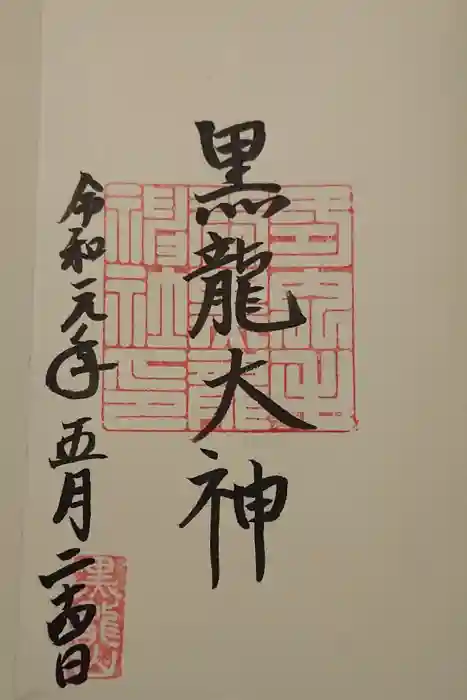 黒龍大神
令和元年五月二十四日
神社印
黒龍山